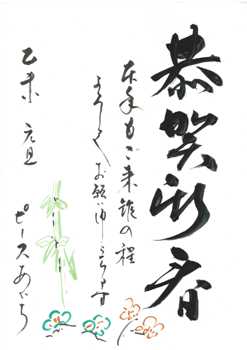 恭賀新春
本年もご来館の程
よろしくお願い申し上げます
乙未 元旦
ピースあいち